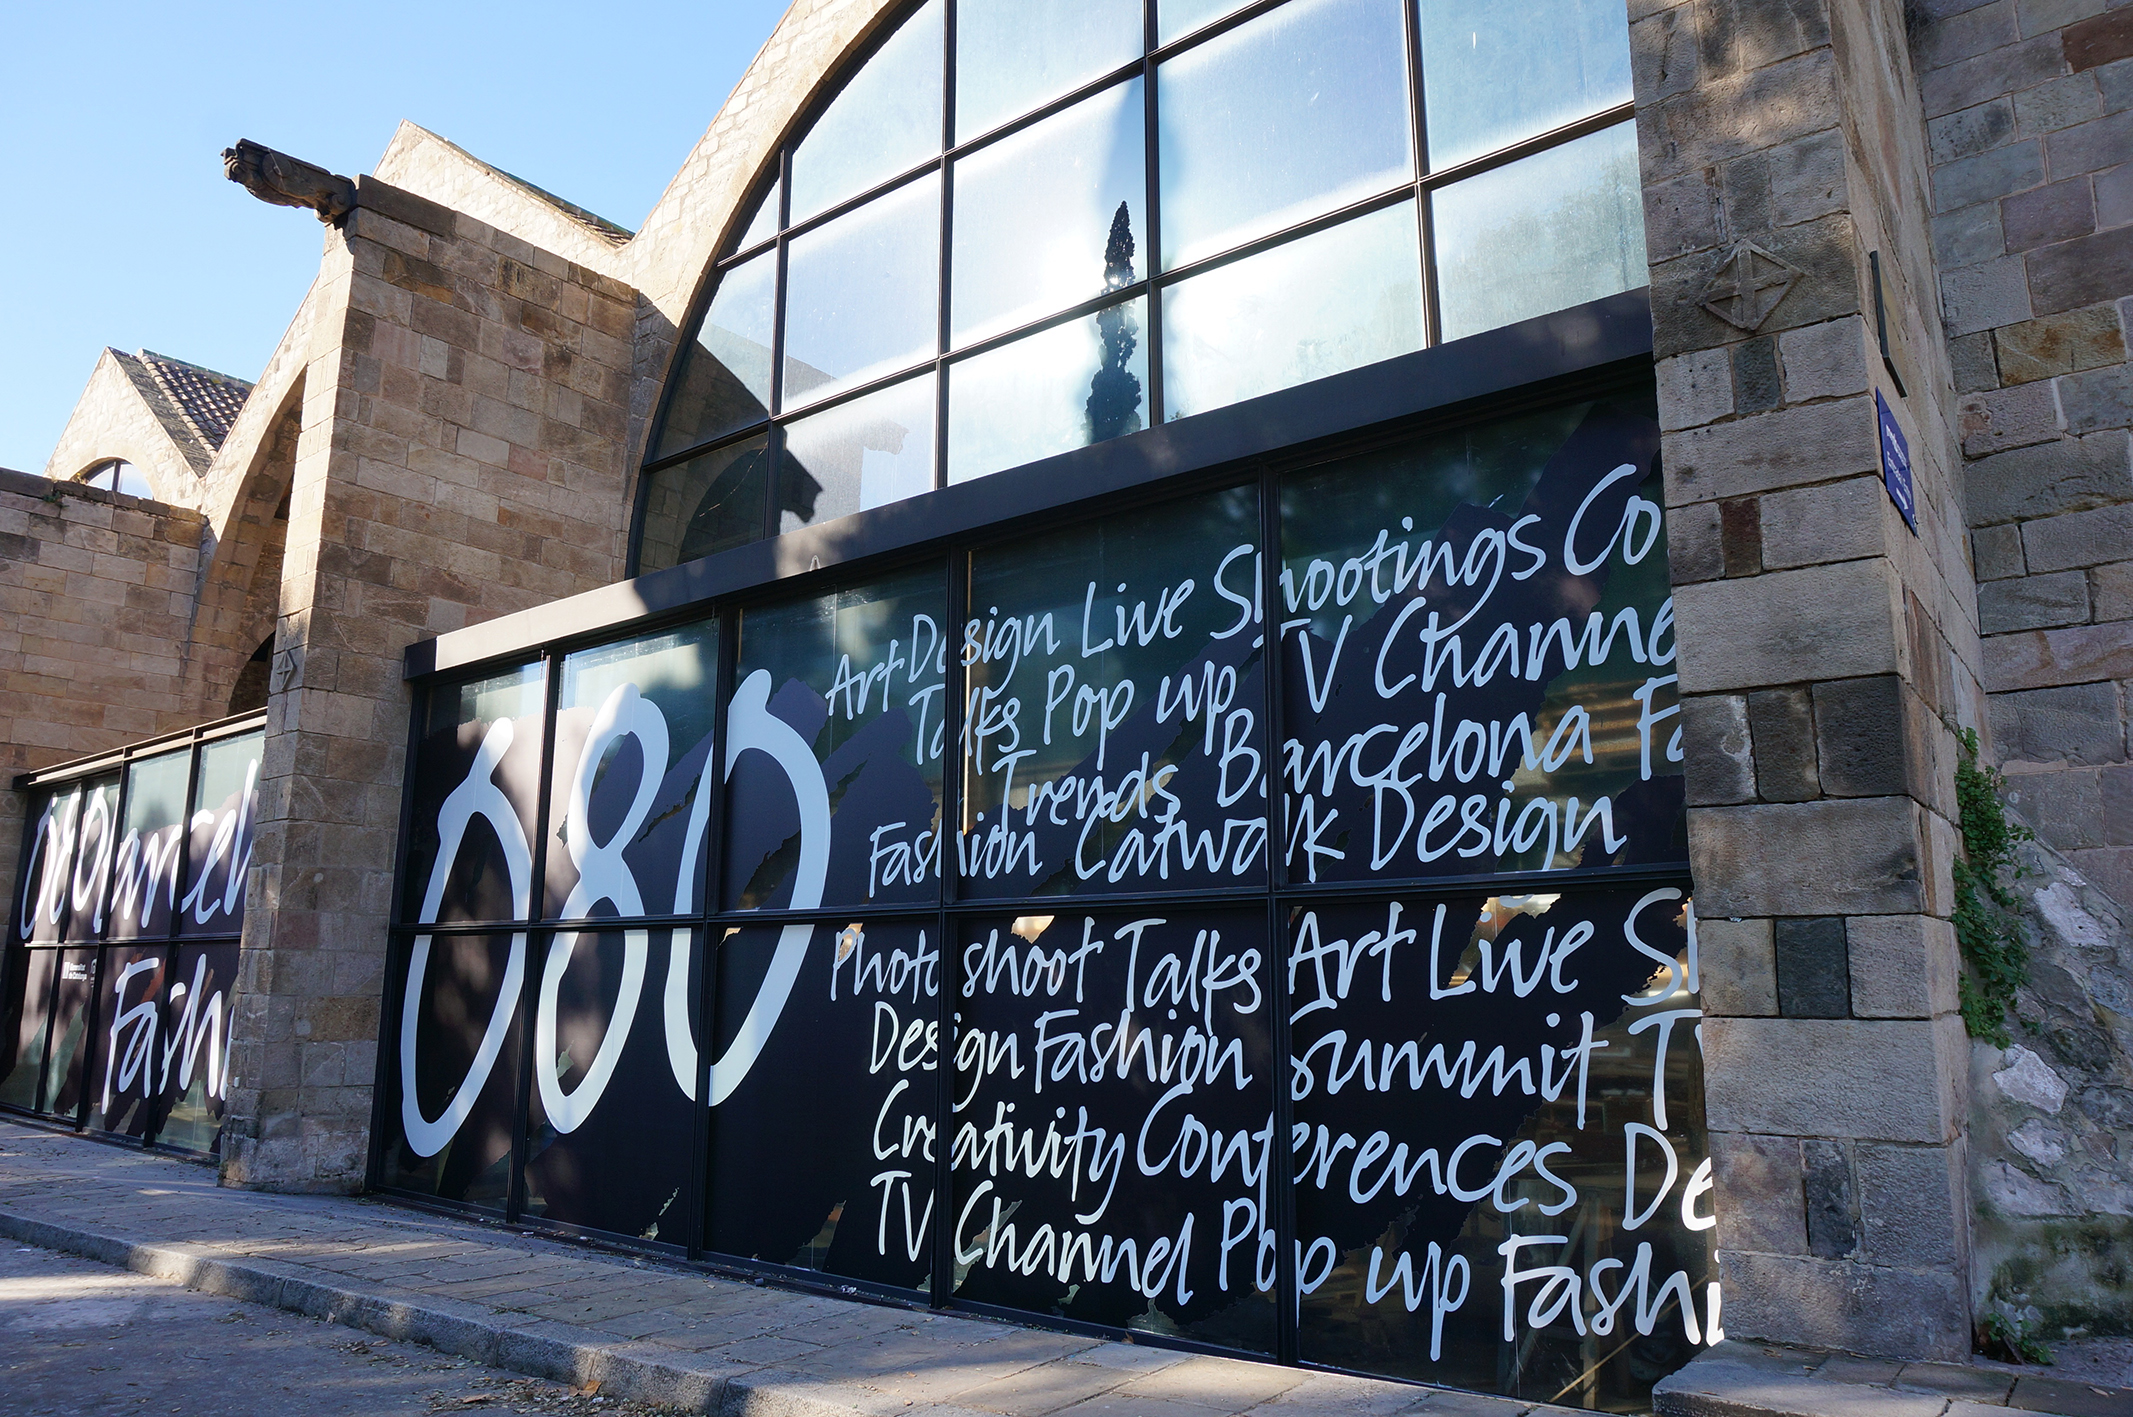 080
Art Design Live Shootings Co
Talks Pop up TV Channe
Trends Barcelona Fa
Fashion Catwalk Design
Photo shoot Talks Art Live S
Design Fashion Summit T
Creativity Conferences De
TV Channel Pop up Fashi
080 Barcel
Fashi